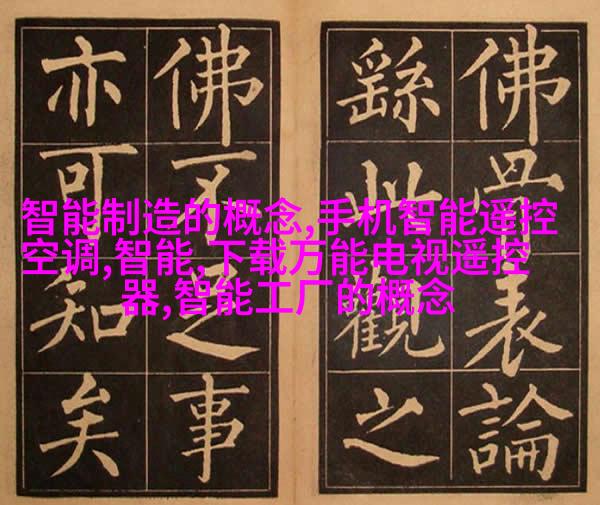 佛骨表論
繇此觀之
佛不足事
亦可知矣
智能制造的概念,手机智能遥控
空调,智能,下载万能电视遥控
器,智能工厂的概念